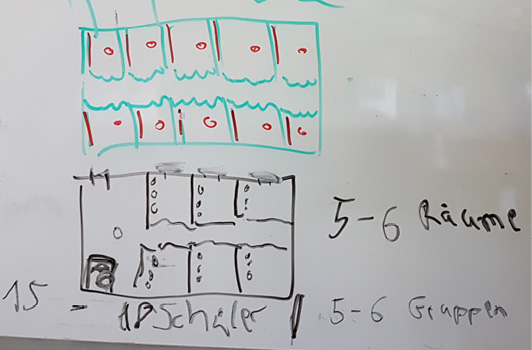 5-6 Räume
15 - 18 Schüler | 5-6 Gruppen